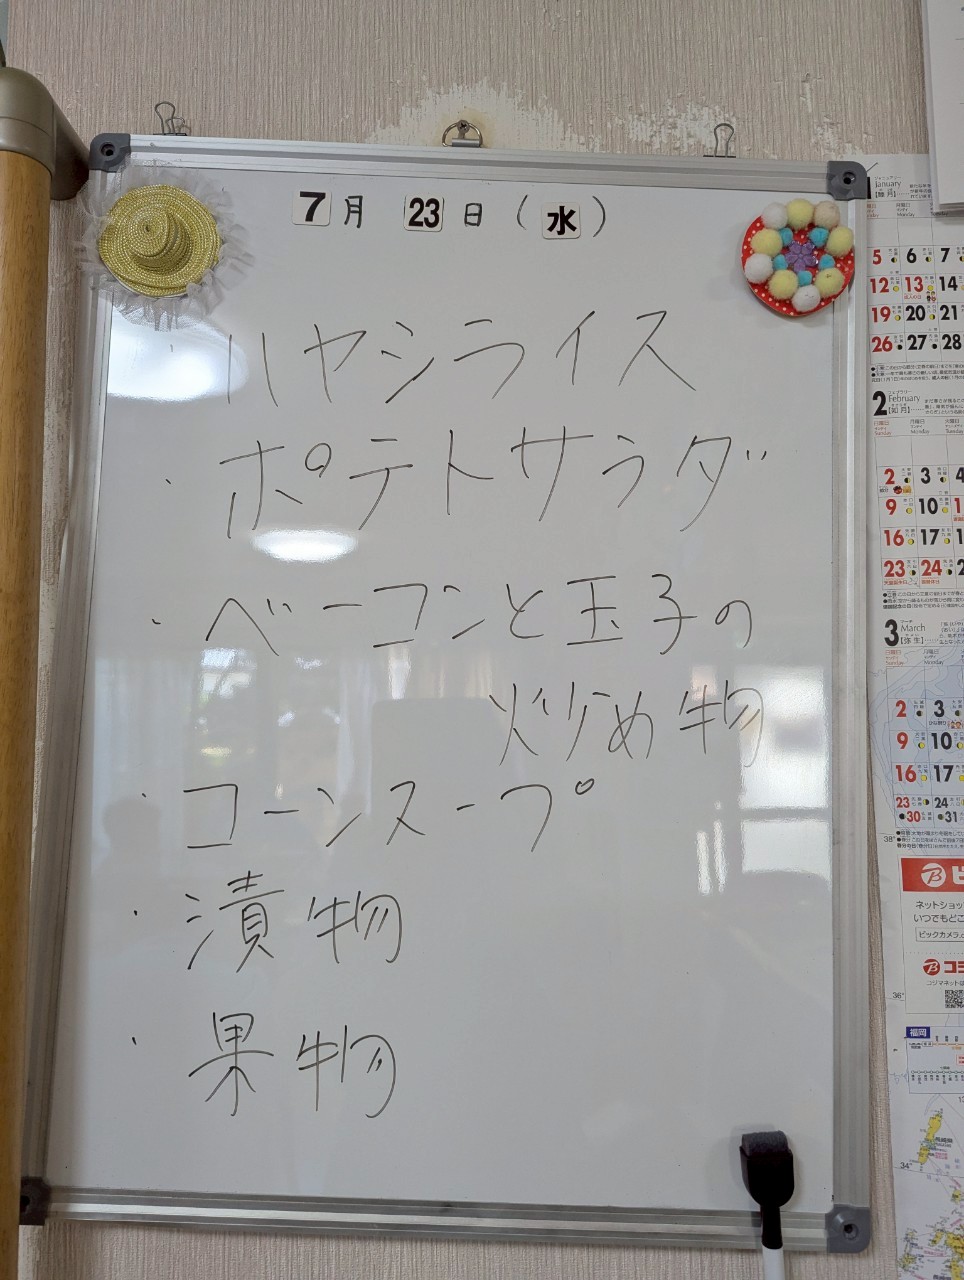 7月 23日 (水)
・ハヤシライス
・ポテトサラダ
・ベーコンと玉子の
炒め物
・コーンスープ
・漬物
・果物
January
【睦月】
日曜日 月曜日
Sunday Monday
5 6 7
12 13 14
19 20 21
26 27 28
2 February
【如月】
2 3 4
9 10
16 17
23 24
3 March
【弥生】
2 3
9 10
16 17
23 24
30 31
38°
ネットショッ
いつでもどこ
ビックカメラ.c
コジ
コジマネットは
36°
福岡
34°